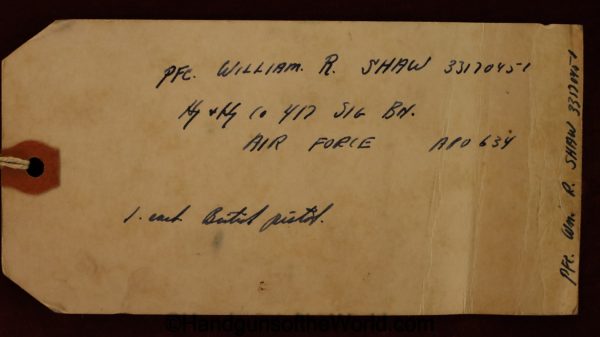 PFC. WILLIAM. R. SHAW 33170451
Hq & Hq Co 417 SIG BN.
AIR FORCE APO 634
1. each British pistol.
PFC. Wm. R. SHAW 33170451
©HandgunsoftheWorld.com